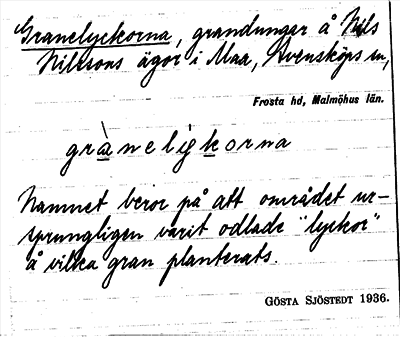 Granelyckorna, grandungar å Nils
Nilssons ägor i Maa, Svensköps sn,
Frosta hd, Malmöhus län.
gràneligkorna
Namnet beror på att området ur-
sprungligen varit odlade "lyckor"
å vilka gran planterats.
GÖSTA SJÖSTEDT 1936.